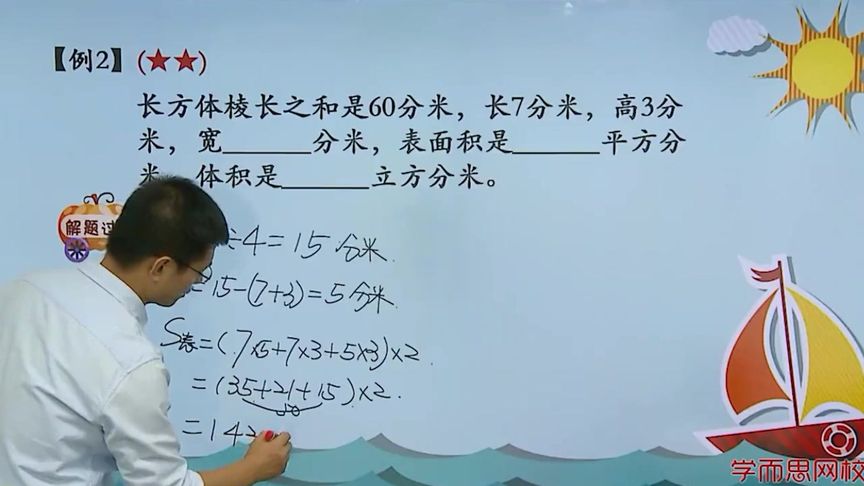 【例2】(★★)
长方体棱长之和是60分米，长7分米，高3分
米，宽______分米，表面积是______平方分
米，体积是______立方分米。
解题过
÷4=15分米.
=15-(7+3)=5分米.
S表=(7×5+7×3+5×3)×2
=(35+21+15)×2.
50
=142
学而思网校